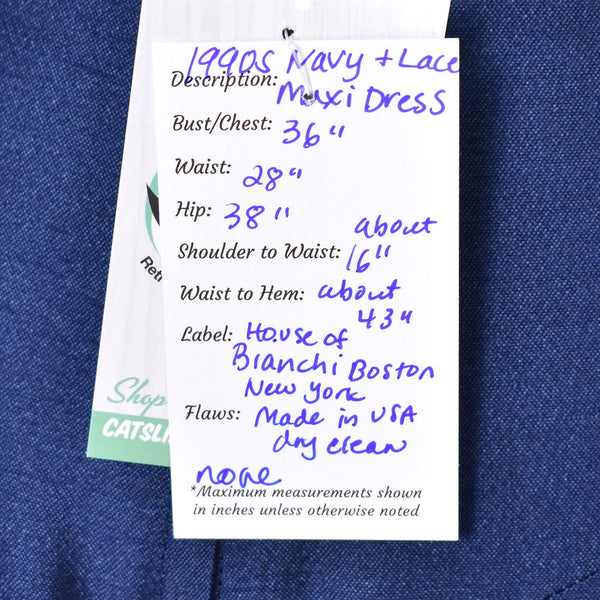 1990s Navy + Lace
Description: Maxi Dress
Bust/Chest: 36"
Waist: 28"
Hip: 38"
about
Shoulder to Waist: 16"
Waist to Hem: about
43"
Label: House of
Bianchi Boston
New York
Flaws: Made in USA
dry clean
none
*Maximum measurements shown
in inches unless otherwise noted
Shop